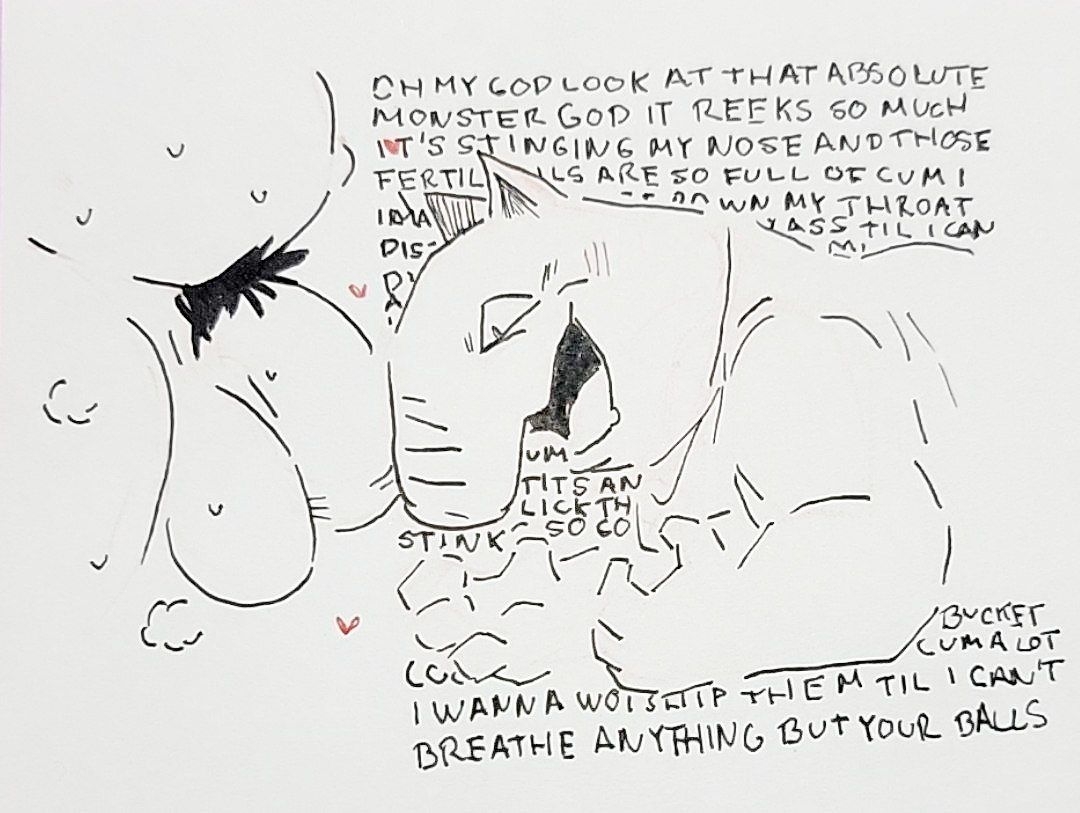 OH MY GOD LOOK AT THAT ABSOLUTE
MONSTER GOD IT REEKS SO MUCH
IT'S STINGING MY NOSE AND THOSE
FERTIL LS ARE SO FULL OF CUM I
WN MY THROAT
DIS ASS TIL I CAN
UM
TITS AN
LICK TH
SO GO
STINK
BUCKET
CUM A LOT
I WANNA WORSHIP THEM TIL I CAN'T
BREATHE ANYTHING BUT YOUR BALLS